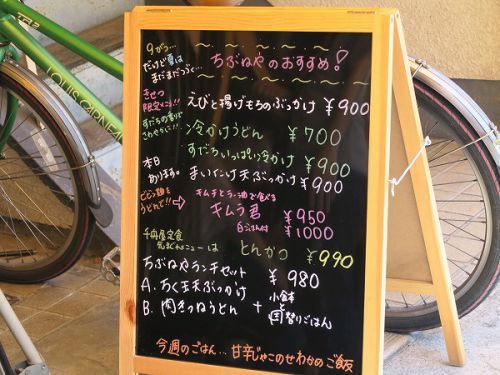 TR2
LOUIS GARNEAU
9がつ…
だけど夏は
まだまだつづく…
ちぶねやのおすすめ!
きせつ
限定メニュー!!
えびと揚げもちのぶっかけ ¥900
すだちの香りで
さわやかに!!
冷かけうどん ¥700
すだちいっぱい冷かけ ¥900
本日
あります。
まいたけ天ぶっかけ ¥900
ビビン麺を
うどんで!!
⇒
キムチとラー油で食べる
キムラ君 ¥950
白ごはん付 ¥1000
千舟屋定食
気まぐれメニューは とんかつ ¥990
ちぶねやランチセット ¥980
A. ちく玉天ぶっかけ
B. 肉きつねうどん
+ 小鉢
日替りごはん
今週のごはん… 甘辛じゃこのせわかめご飯